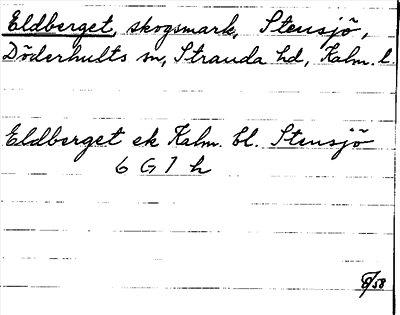 Eldberget, skogsmark, Stensjö,
Döderhults sn, Stranda hd, Kalm. l.
Eldberget ek Kalm. bl. Stensjö
6 G 7 h